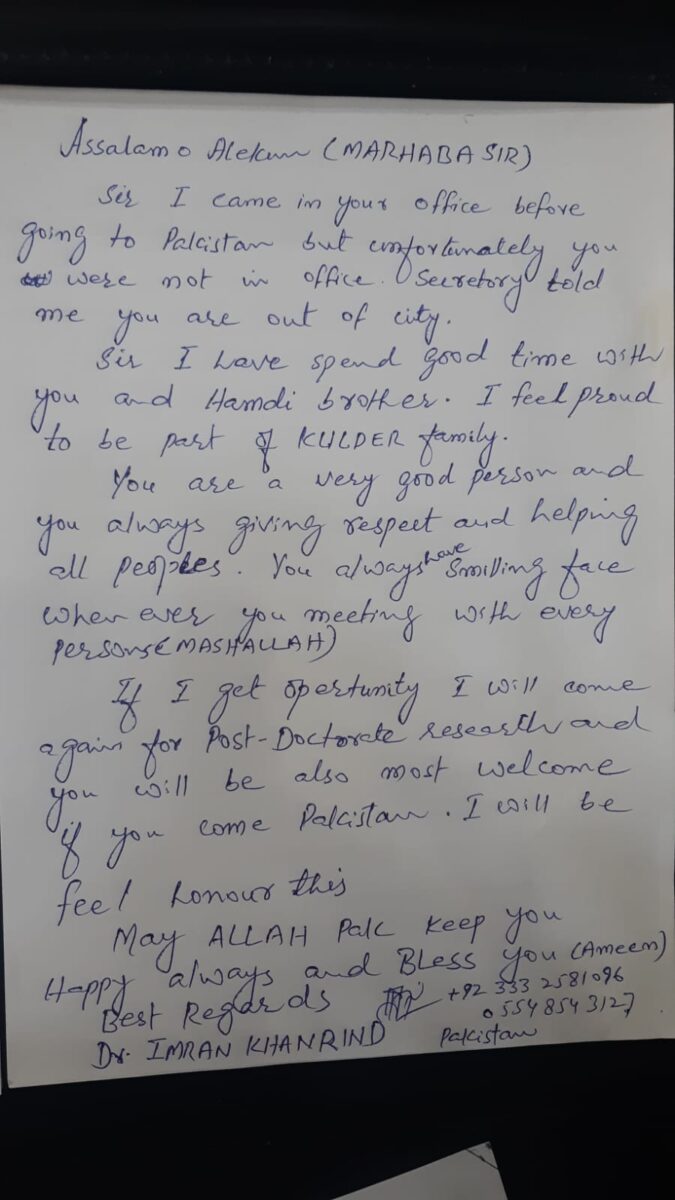 Assalam o Alekum (MARHABA SIR)
Sir I came in your office before
going to Pakistan but unfortunately you
were not in office. Secretory told
me you are out of city.
Sir I have spend good time with
you and Hamdi brother. I feel proud
to be part of KULDER family.
You are a very good person and
you always giving respect and helping
all peoples. You always have Smilling face
when ever you meeting with every
persons (MASHALLAH)
If I get opertunity I will come
again for Post-Doctorate research and
you will be also most welcome
if you come Pakistan. I will be
feel honour this
May ALLAH Pak keep you
Happy always and Bless you (Ameem)
Best Regards +92 333 2581096
0554 854 3127
Dr. IMRAN KHAN RIND Pakistan